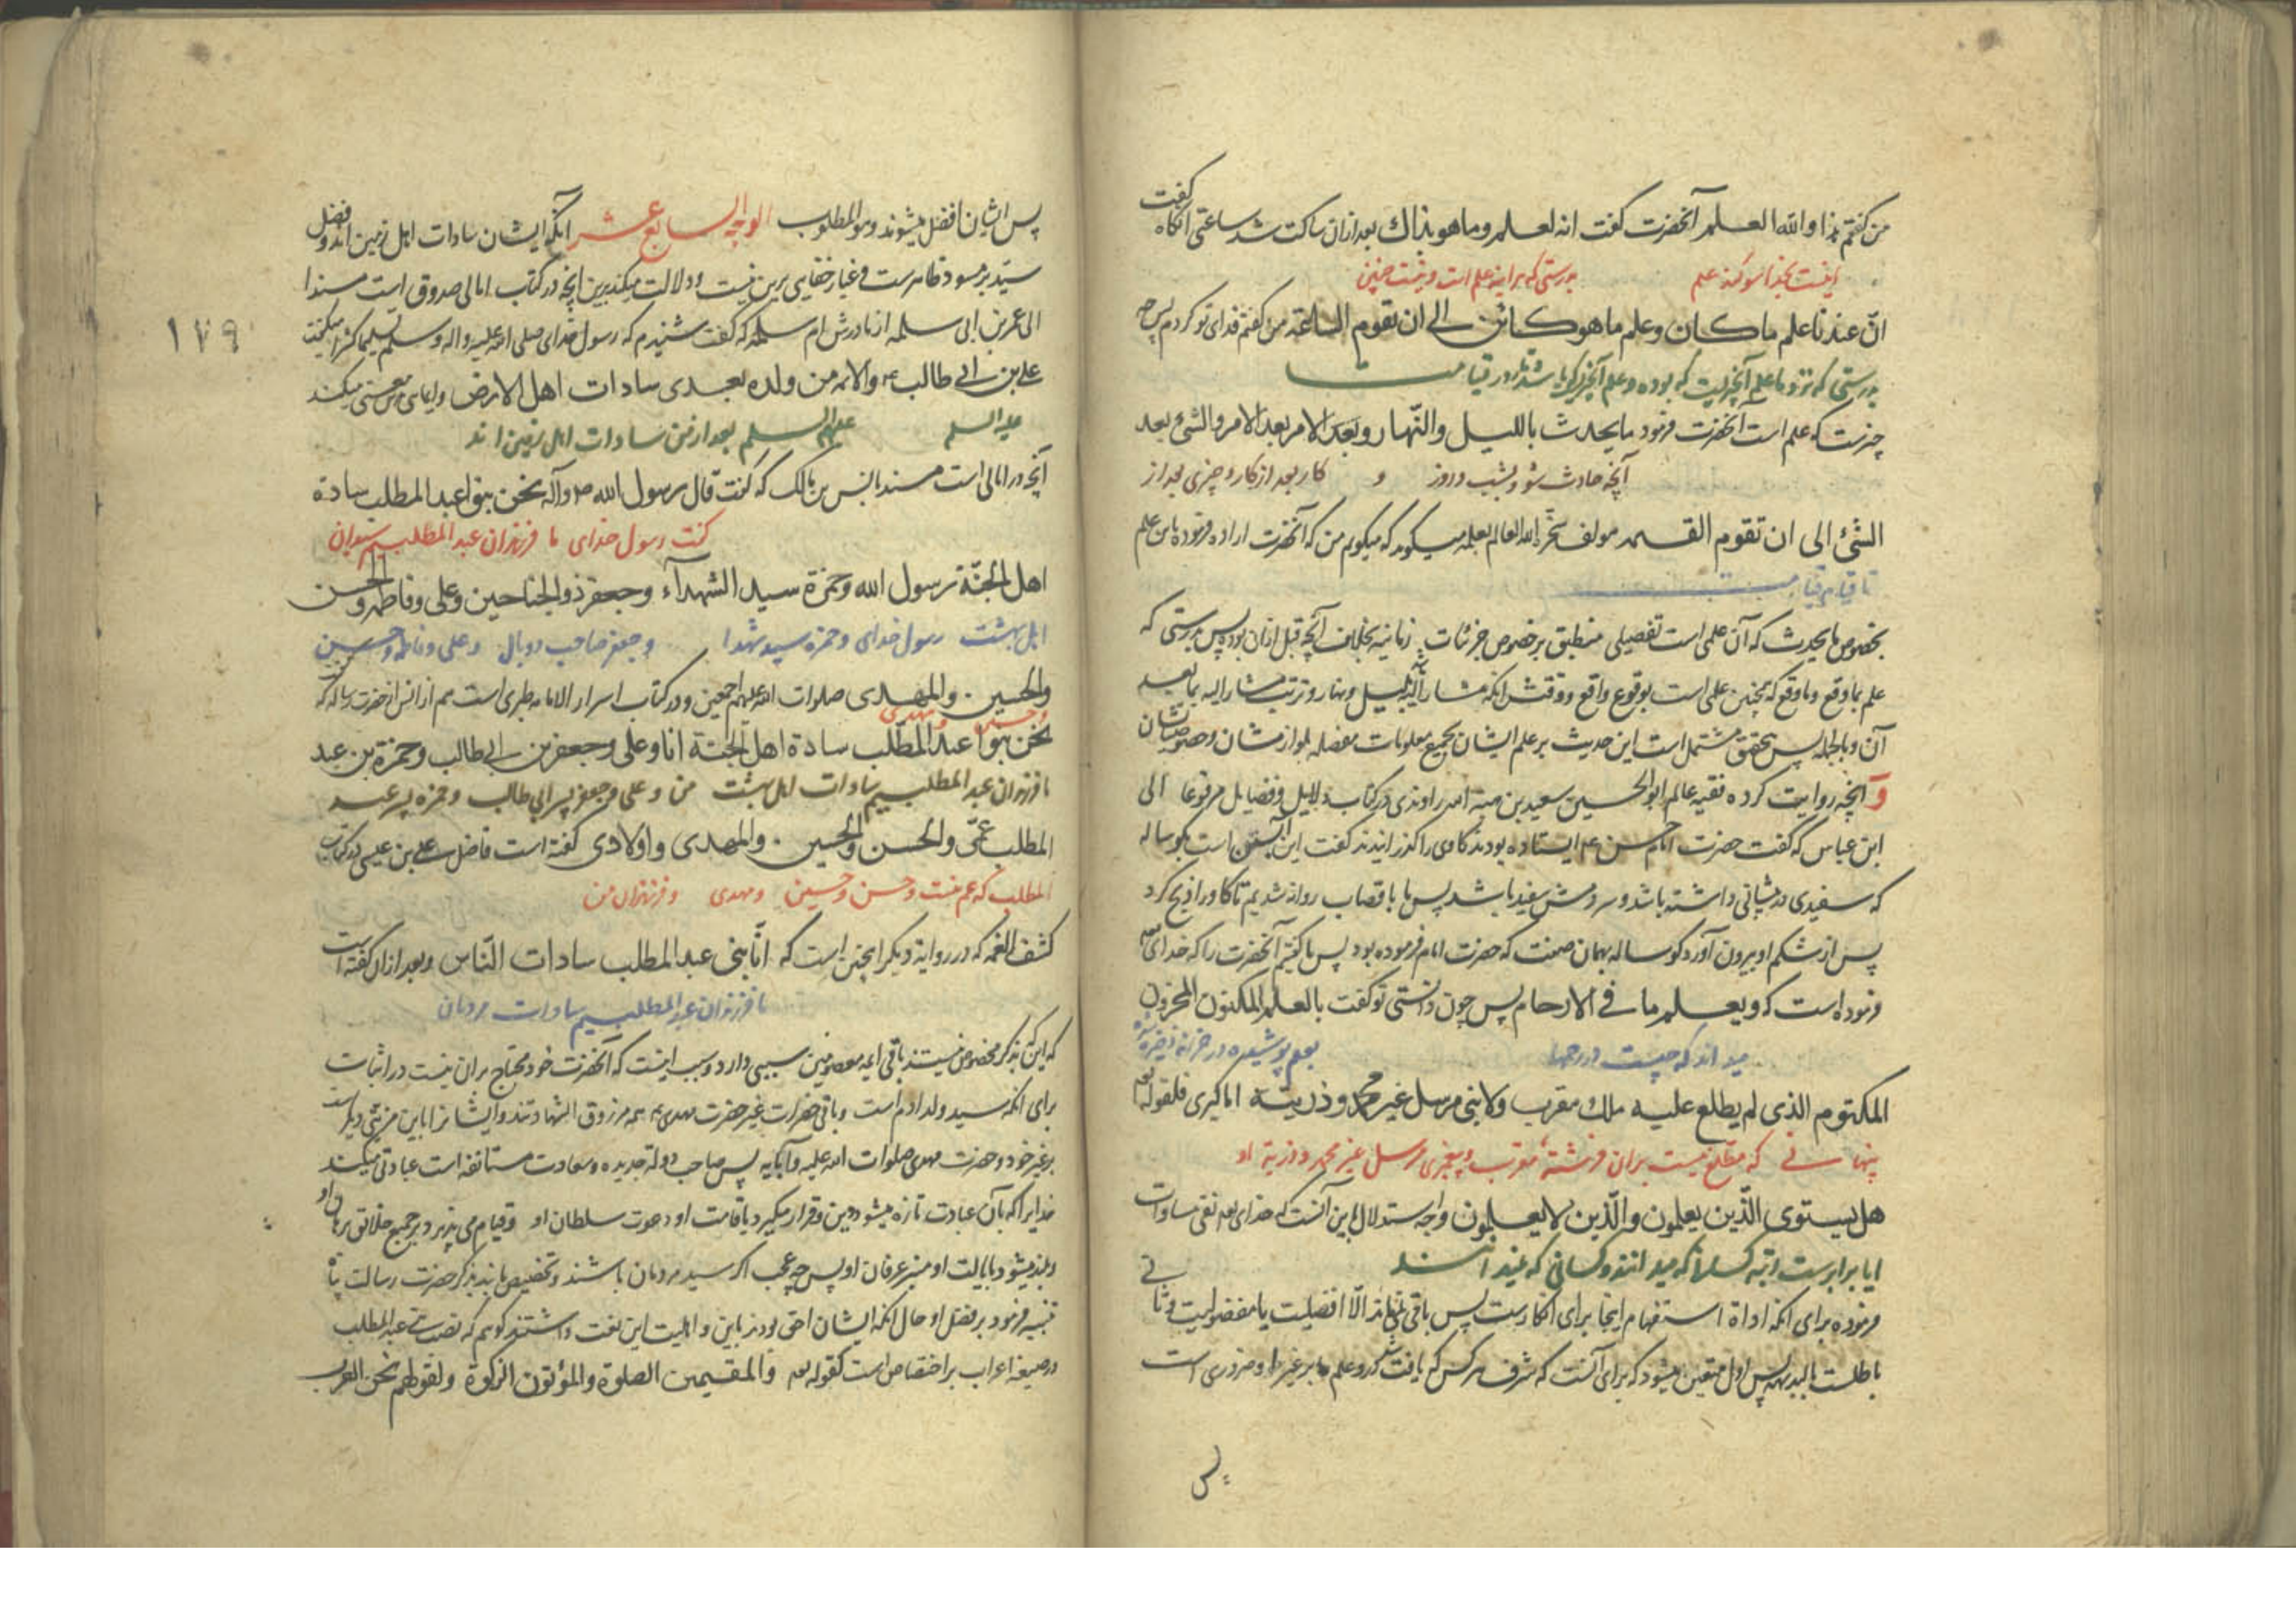 کفت
من کفتم هذا والله العلم آنحضرت کفت انه لعلم وما هو بذاك بعد ازان ساکت شد ساعتی آنکاه
اینست بخدا سوکند علم بدرستی که هر اینه علم است و نیست چنین
انّ عندنا علم ما کان وعلم ما هو کائن الی ان تقوم الساعة من کفتم فدای تو کردم پس چه
بدرستی که نزد ما علم آنچیزیست که بوده و علم آنچیزیکه باشد تا روز قیامت
چیزست که علم است آنحضرت فرمود ما یحدث باللیل والنّهار وبعد الامر بعد الامر والشئ بعد
آنچه حادث شود بشب و روز و کار بعد از کار و چیزی بعد از
الشئ الی ان تقوم القیمه مولف العالم بعلمه میکوید که میکویم من که آنحضرت اراده فرموده باین علم
تا قیام قیامت
بخصوص ما یحدث که آن علمی است تفصیلی منطبق بر خصوص جزئیات زمانیه بخلاف آنچه قبل ازان بود پس بدرستی که
علم بما وقع وما وقع که همچنین علمی است بوقوع واقع ووقتش انکه مشار الیه بلیل ونهار وترتب مشار الیه بما بعد
آن وبالجمله پس بتحقیق مشتمل است این حدیث بر علم ایشان بجمیع معلومات مفصله بلوازمشان وخصوصیاتشان
و آنچه روایت کرده فقیه عالم ابو الحسین سعید بن هبة الله راوندی در کتاب دلایل وفضایل مرفوعا الی
ابن عباس که کفت حضرت امام حسن ع ایستاده بودند کاوی را کذرانیدند کفت این آبستن است بکوساله
که سفیدی در پیشانی داشته باشد وسر دمش سفید باشد پس ما با قصاب روانه شدیم تا کاو را ذبح کرد
پس از شکم او بیرون آورد کوساله بهمان صفت که حضرت امام فرموده بود پس ما کفتیم آنحضرت را که خدای تعالی
فرموده است که ویعلم ما فی الارحام پس چون دانستی تو کفت بالعلم المکنون المخزون
میداند که چیست در رحمها بعلم پوشیده در خزانه
المکتوم الذی لم یطلع علیه ملك مقرب ولا نبی مرسل غیر محمد وذریته اما کبری فلقوله تعالی
پنهانی که مطلع نیست بران فرشته مقرب و پیغمبری مرسل غیر محمد و ذریة او
هل یستوی الّذین یعلمون والّذین لا یعلمون وجه استدلال باین آنست که خدای تعه نفی مساوات
ایا برابرست رتبه کسانیکه میدانند و کسانی که نمیدانند
فرموده برای انکه اداة استفهام اینجا برای انکارست پس باقی نماند الّا افضلیت یا مفضولیت وثانی
باطلست بالبدیهه پس اول متعین میشود که برای آنست که شرف هر کس که یافت شد درو علم بر غیر او ضروری است
پس
پس ایشان افضل میشوند وهو المطلوب الوجه السابع عشر آنکه ایشان سادات اهل زمین اند وفضل
سیّد بر مسود ظاهرست وغبار خفایی برین نیست ودلالت میکند برین آنچه در کتاب امالی صدوق است مسندا
الی عمر بن ابی سلمه از مادرش ام سلمه که کفت شنیدم که رسول خدای صلی الله علیه واله وسلم تسلیما کثیرا میکفت
۱۷۹
علی بن ابی طالب ع والائمه من ولده بعدی سادات اهل الارض
علیه السلم علیهم السلم بعد از من سادات اهل زمین اند
آنچه در امالی است مسند انس بن مالک که کفت قال رسول الله ص وآله نحن بنوا عبد المطلب سادة
کفت رسول خدای ما فرزندان عبد المطلبیم سروران
اهل الجنّة رسول الله وحمزة سید الشهدآء وجعفر ذو الجناحین وعلی وفاطمه والحسن
اهل بهشت رسول خدای و حمزه سید شهدا و جعفر صاحب دو بال و علی و فاطمه و حسن
والحسین والمهدی صلوات الله علیهم اجمعین ودر کتاب اسرار الامامه طبری است هم از انس از حضرت رسالت که
و حسین و مهدی
نحن بنوا عبد المطلب سادة اهل الجنة انا وعلی وجعفر بن ابی طالب وحمزة بن عبد
ما فرزندان عبد المطلبیم سادات اهل بهشت من و علی و جعفر پسر ابی طالب و حمزه پسر عبد
المطلب عمّی والحسن والحسین والمهدی واولادی کفته است فاضل علی بن عیسی در کتاب
المطلب که عم منست و حسن و حسین و مهدی و فرزندان من
کشف الغمه که در روایة دیکر اینچنین است که انّا بنی عبد المطلب سادات النّاس وبعد ازان کفته است
ما فرزندان عبد المطلبیم سادات مردمان
که این که بذکر مخصوص نیستند باقی ایمه معصومین سببی دارد وسبب اینست که آنحضرت خود محتاج بران نیست در اثبات
برای انکه سید ولد ادم است وباقی حضرات غیر حضرت مهدی ع همه مرزوق الشهادتند وایشانرا باین مزیتی دیکر است
بر غیر خود وحضرت مهدی صلوات الله علیه وآبایه پس صاحب دولة جدیده وسعادت مستانفه است عبادتی میکند
خدایرا که بآن عبادت تازه میشود دین وقرار میکیرد باقامت او دعوت سلطان او وقیام می پذیرد بر جمیع خلایق برهان او
وبلند میشود بایالت او منبر عرفان او پس چه عجب اکر سید مردمان باشند وتخصیص یابند بذکر حضرت رسالت پناه
تنبیه فرمود بر فضل او حال انکه ایشان احق بودند باین واهلیت این نعت داشتند کویم که نصب بنی عبد المطلب
در صیغه اعراب بر اختصاص است کقوله تعه والمقیمین الصلوة والمؤتون الزکوة ولقولهم نحن العرب